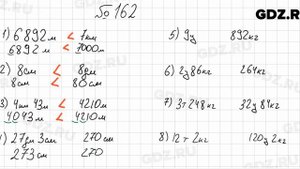 № 162
GDZ.RU
1) 6892м < 7км
6892м < 7000м
2) 8см < 8дм
8см < 80см
3) 4км 43м < 4210м
4043м < 4210м
4) 27дм 3см 270см
273см 270
5) 9ц 892кг
6) 2ц 86кг 264кг
7) 3т 248кг 32ц 84кг
8) 12т 2кг 120ц 2кг
GDZ.RU